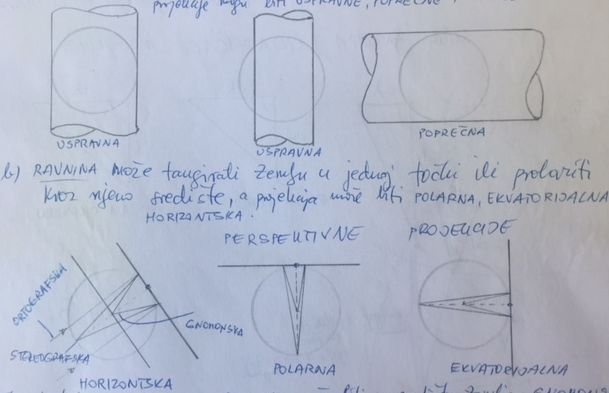 projekcije mogu biti USPRAVNE, POPREČNE i
USPRAVNA
USPRAVNA
POPREČNA
b) RAVNINA može tangirati Zemlju u jednoj točki ili prolaziti
kroz njeno središte, a projekcija može biti POLARNA, EKVATORIJALNA
HORIZONTSKA.
PERSPEKTIVNE PROJEKCIJE
ORTOGRAFSKA
GNOMONSKA
STEREOGRAFSKA
HORIZONTSKA
POLARNA
EKVATORIJALNA